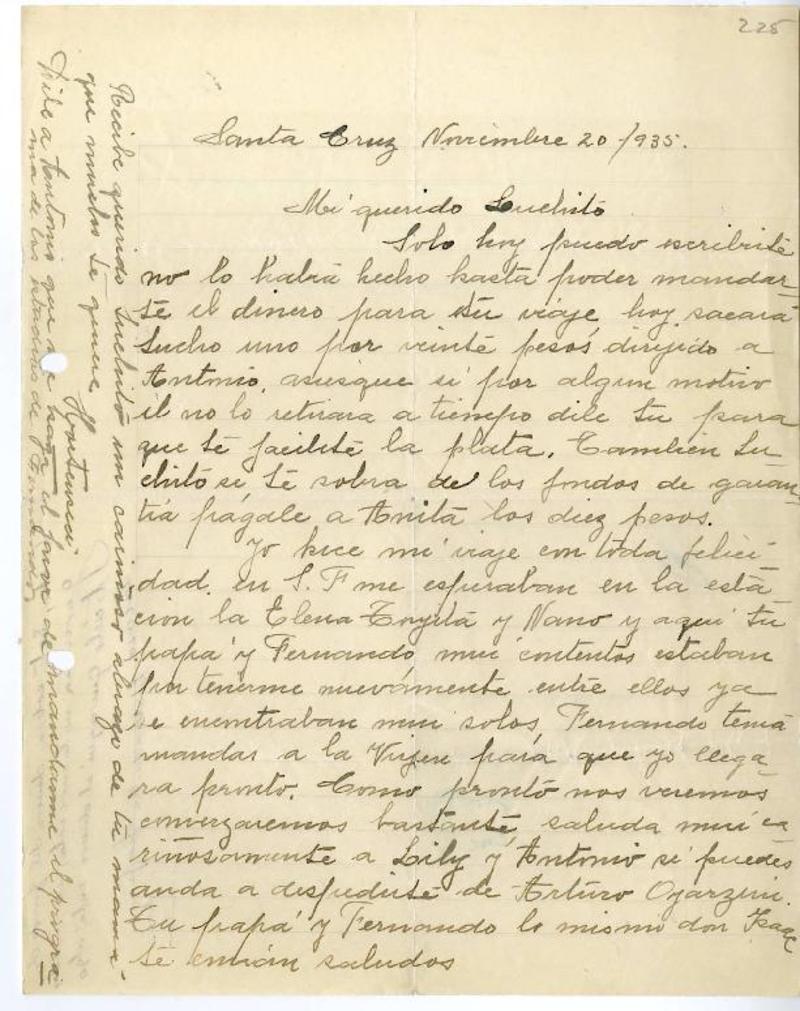 225
Santa Cruz Noviembre 20-/935.
Mi querido Luchito
Solo hoy puedo escribirte
no lo habia hecho hasta poder mandar-
te el dinero para tu viaje hoy sacará
Lucho uno por veinte pesos dirijido a
Antonio, asusque si por algun motivo
él no lo retirara a tiempo dile tu para
que te facilite la plata. Tambien Lu
chito si te sobra de los fondos de garan-
tia págale a Anita los diez pesos.
Yo hice mi viaje con toda felici-
dad. en S. F me esperaban en la esta
cion la Elena y Nano y aqui tu
papá y Fernando, mui contentos estaban
por tenerme nuevamente entre ellos ya
se encontraban mui solos, Fernando tenia
mandas a la Virjen para que yo llega-
ra pronto. Como pronto nos veremos
converzaremos bastante, saluda mui ca
riñosamente a Lily y Antonio si puedes
anda a despedirte de Arturo Oyarzun.
Tu papá y Fernando lo mismo don Isaac
te envian saludos
Recibe querido Luchito un cariñoso abrazo de tu mamá
que mucho te quiere
Hortensia
Dile a Antonio que me haga el favor de mandarme el progra
ma de los estudios de Fernando